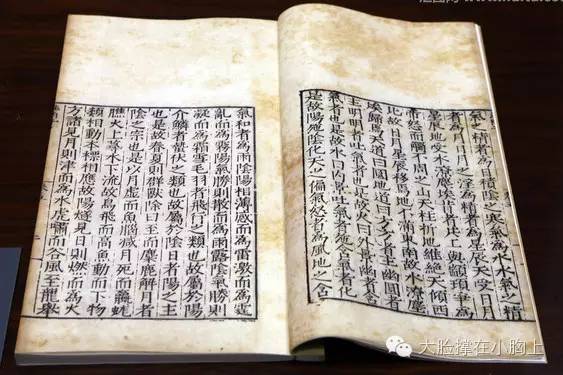 氣之精者為日積陰之寒氣為水水氣之精
者為月日月之淫為精者為星辰天受日月
星辰地受水潦塵埃昔者共工與顓頊爭為
帝怒而觸不周之山天柱折地維絕天傾西
北故日月星辰移焉地不滿東南故水潦塵
埃歸焉天道曰圓地道曰方方者主幽圓者
主明明者吐氣者也是故火曰外景幽者含
氣者也是故水曰內景吐氣者施含氣者化
是故陽施陰化天之偏氣怒者為風地之含
氣和者為雨陰陽相薄感而為雷激而為霆
亂而為霧陽氣勝則散而為雨露陰氣勝則
凝而為霜雪毛羽者飛行之類也故屬於陽
介鱗者蟄伏之類也故屬於陰日者陽之主
也是故春夏則群獸除日至而麋鹿解月者
陰之宗也是以月虛而魚腦減月死而蠃蛖
膲火上蕁水下流故鳥飛而高魚動而下物
類相動本標相應故陽燧見日則燃而為火
方諸見月則津而為水虎嘯而谷風至龍舉
大脸撑在小胸上